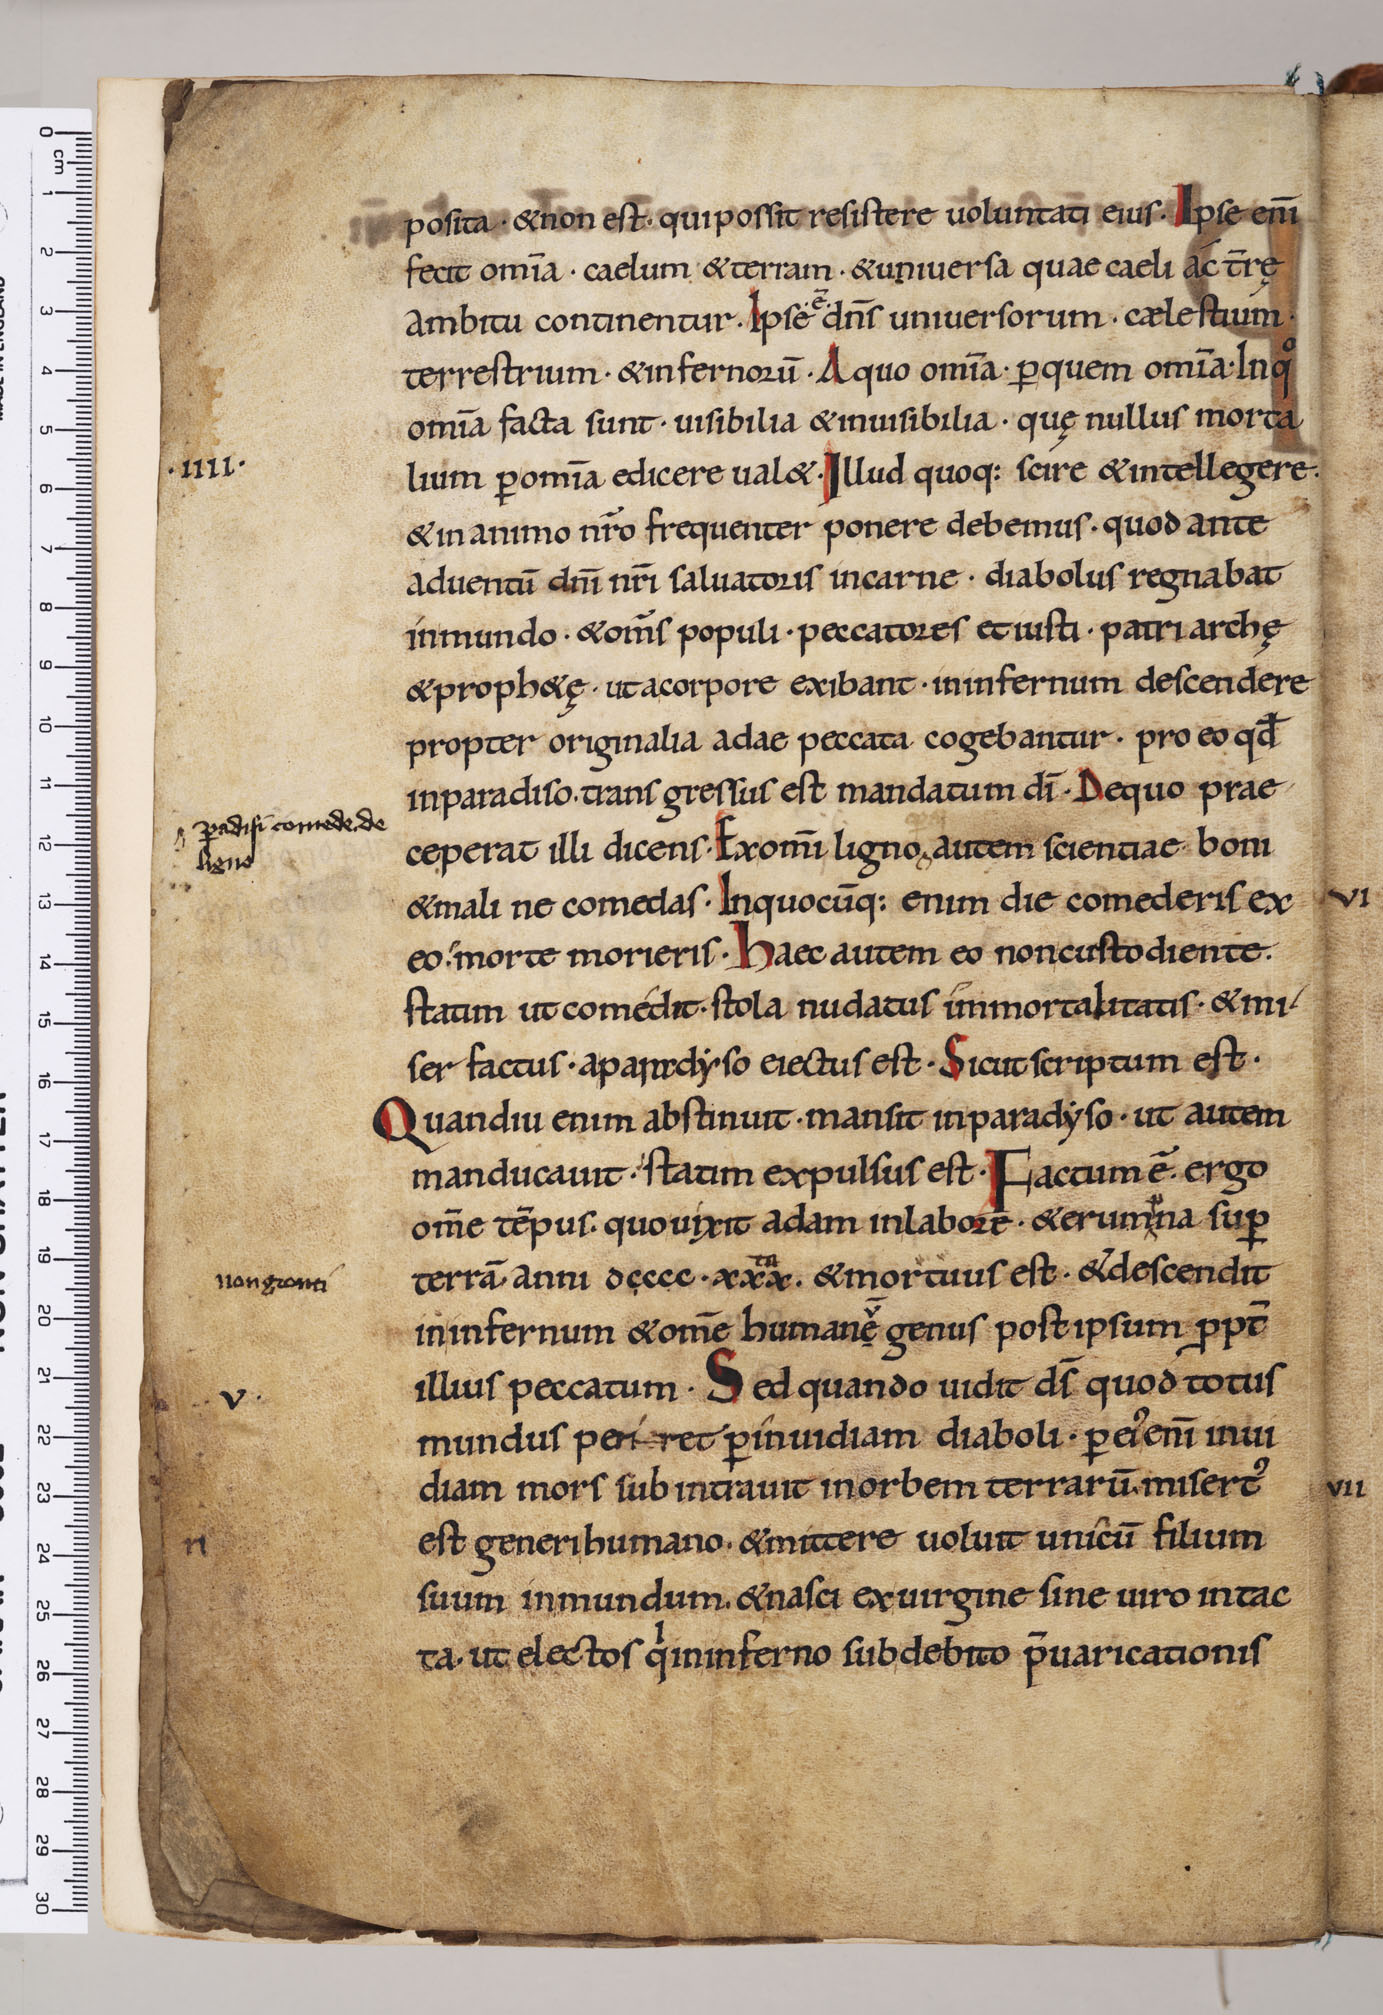 posita · & non est · qui possit resistere uoluntati eius · Ipse enī
fecit om̄ia · caelum & terram · & uniuersa quae caeli ác t̄rę
ambitu continentur · Ipse ·ē· dn̄s uniuersorum · cælestium ·
terrestrium · & infernorū · A quo om̄ia · ꝑ quem om̄ia · In qͦ
om̄ia facta sunt · uisibilia & inuisibilia · quę nullus morta
·IIII·
lium ꝑ om̄ia edicere ual& · Illud quoq: scire & intellegere ·
& in animo nr̄o frequenter ponere debemus · quod ante
aduentū dn̄i nr̄i saluatoris in carne · diabolus regnabat
in mundo · & om̄s populi · peccatores et iusti · patriarchę
& proph&ę · ut a corpore exibant · in infernum descendere
propter originalia adae peccata cogebantur · pro eo qd̄
in paradiso · transgressus est mandatum dī · De quo prae
ꝑadisi comede · de
ligno
ceperat illi dicens · Ex om̄i ligno autem scientiae boni
& mali ne comedas · In quocūq: enim die comederis ex
VI
eo · morte morieris · Haec autem eo non custodiente ·
statim ut comédit · stola nudatus immortalitatis · & mi
ser factus · a paradyso eiectus est · Sicut scriptum est ·
Quandiu enim abstinuit · mansit in paradyso · ut autem
manducauit · statim expulsus est · Factum ē · ergo
om̄e tēpus · quo uixit adam in labore · & erumna suꝑ
terrā · anni dcccc · xxx ta · & mortuus est · & descendit
in infernum & om̄e humanę v̄ genus post ipsum ꝓpt̄
illius peccatum · Sed quando uidit ds̄ quod totus
V ·
mundus periret ꝑ inuidiam diaboli · ꝑ ei⁹ enī inui
diam mors subintrauit in orbem terrarū · misert⁹
VII
est generi humano · & mittere uoluit unicū filium
suum in mundum · & nasci ex uirgine sine uiro intac
ta · ut electos qⁱ in inferno sub debito p̄uaricationis
0 cm 1 2 3 4 5 6 7 8 9 10 11 12 13 14 15 16 17 18 19 20 21 22 23 24 25 26 27 28 29 30